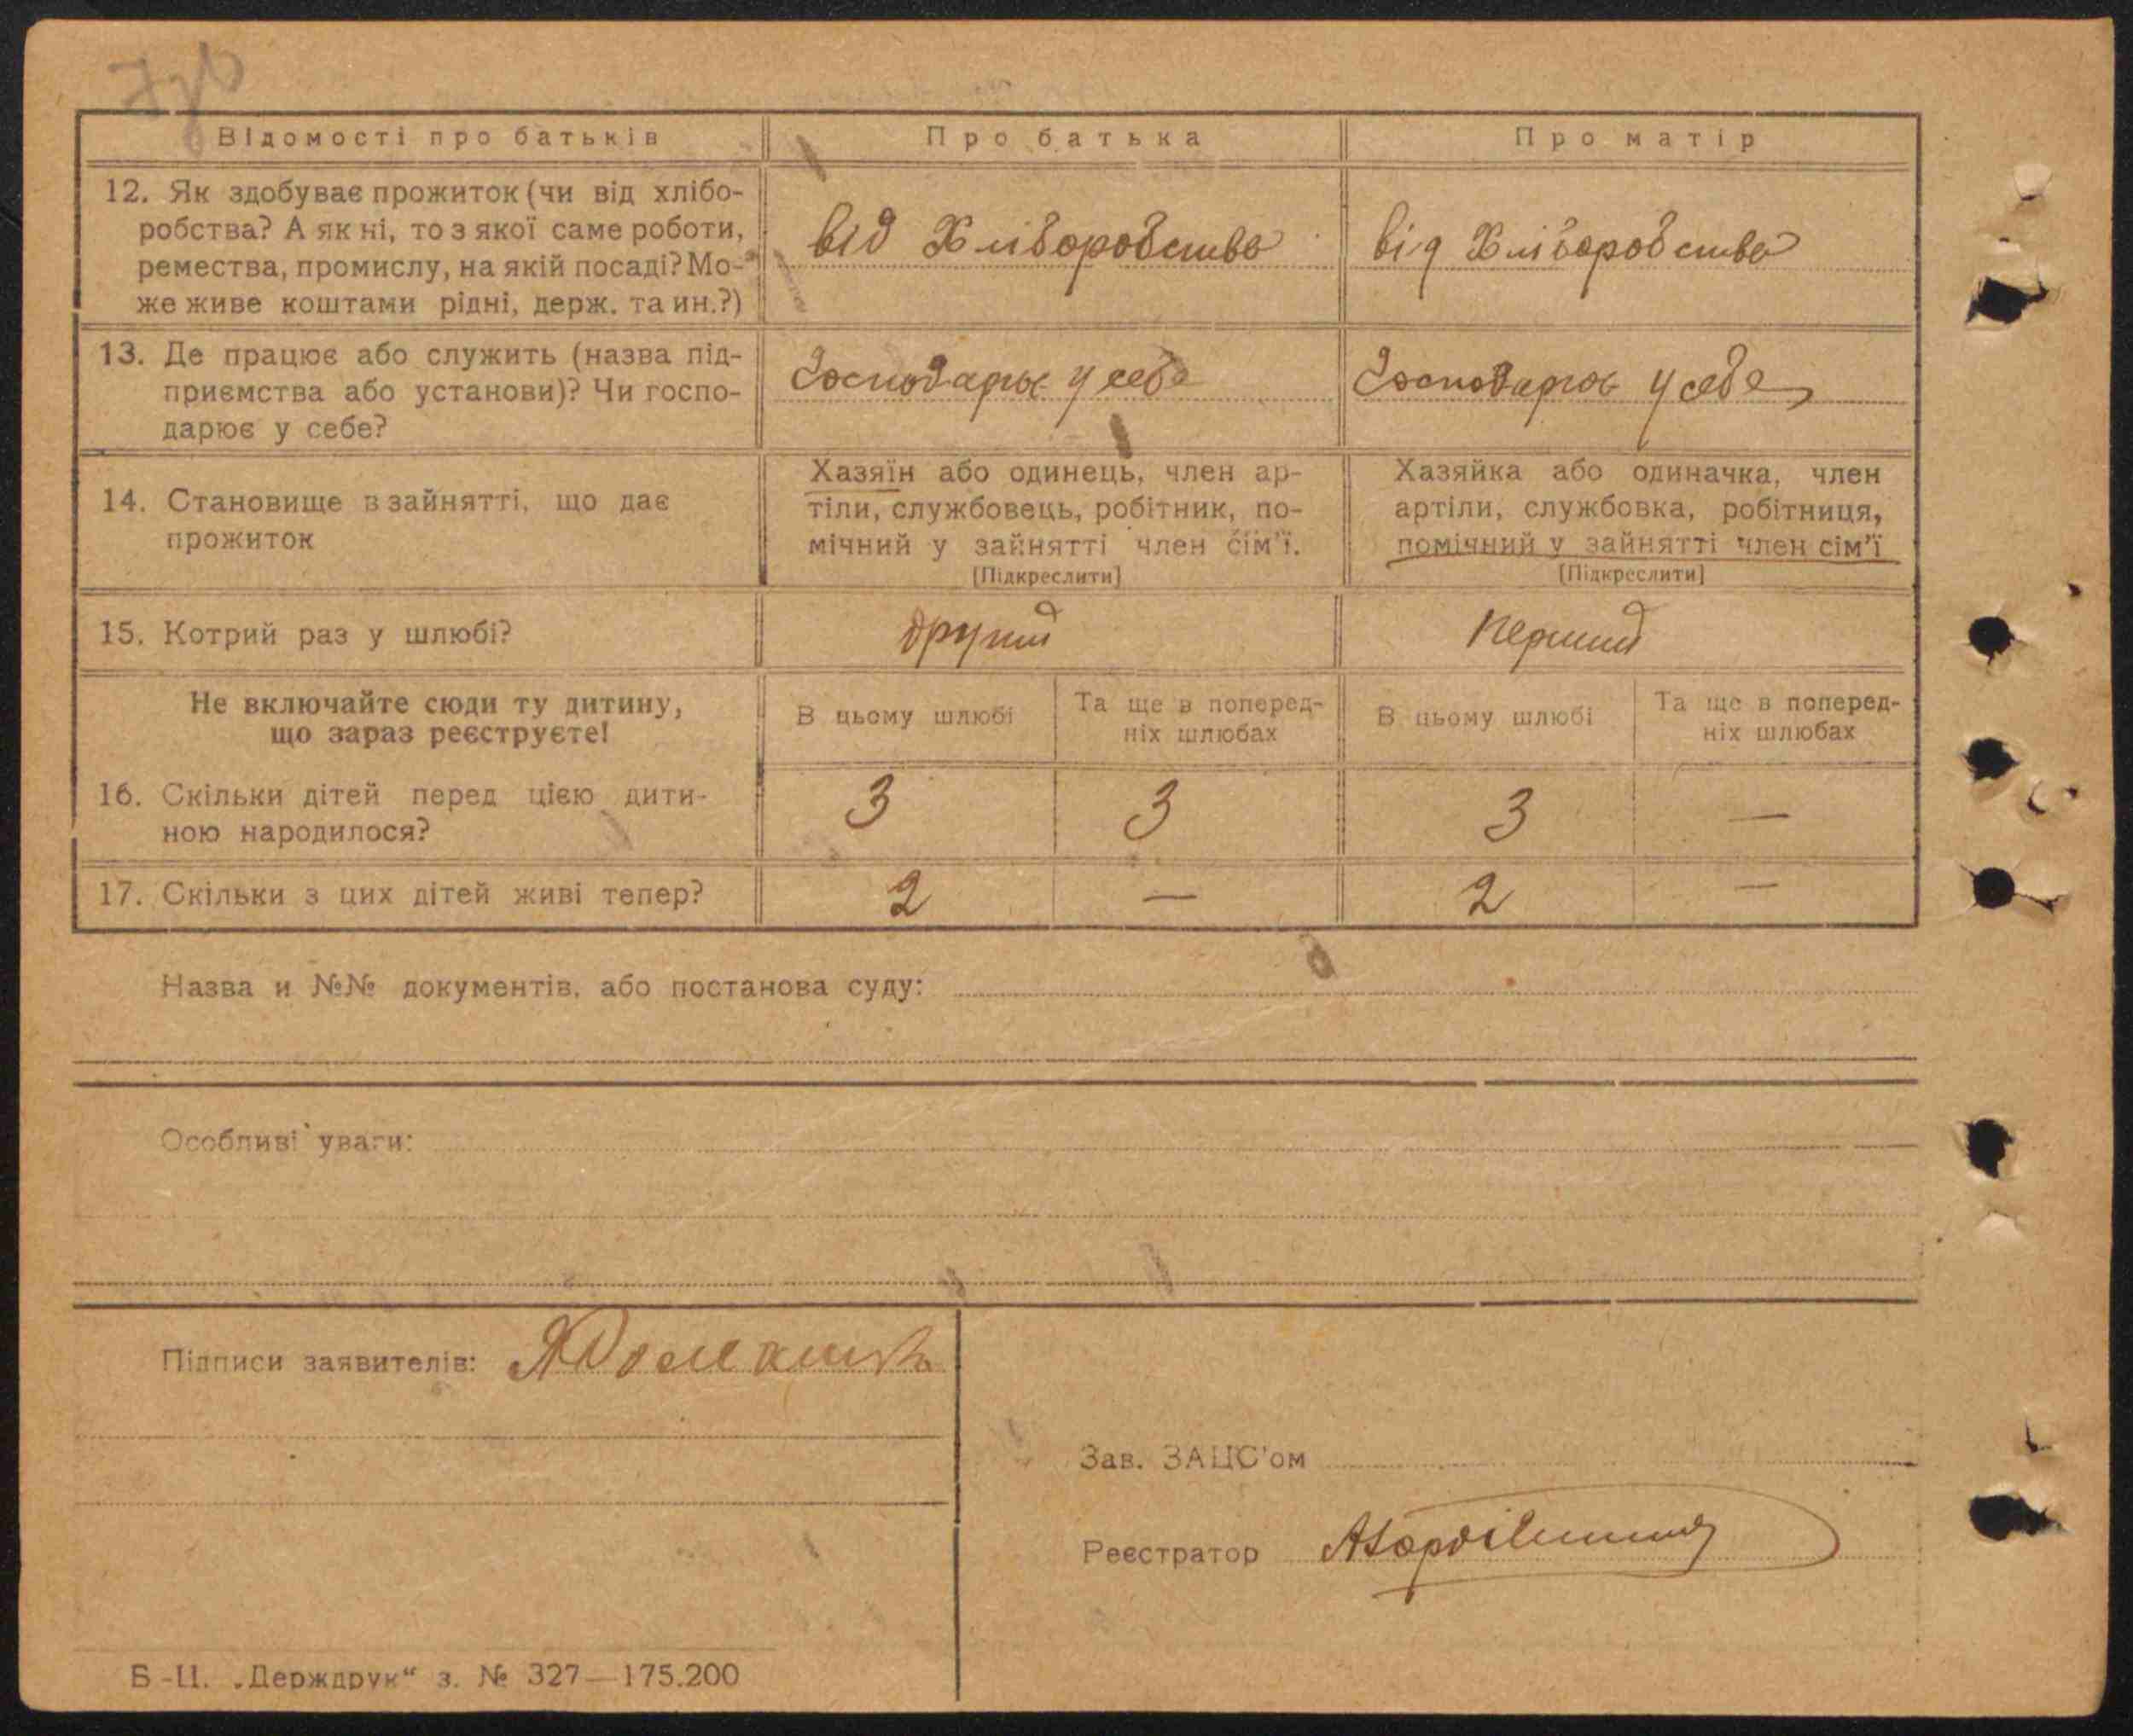 Відомості про батьків
Про батька
Про матір
12. Як здобуває прожиток (чи від хлібо-
робства? А як ні, то з якої саме роботи,
ремества, промислу, на якій посаді? Мо-
же живе коштами рідні, держ. та ин.?)
від Хліборобства
від Хліборобства
13. Де працює або служить (назва під-
приємства або установи)? Чи госпо-
дарює у себе?
Господарює у себе
Господарює у себе
14. Становище в зайнятті, що дає
прожиток
Хазяїн або одинець, член ар-
тіли, службовець, робітник, по-
мічний у зайнятті член сім'ї.
[Підкреслити]
Хазяйка або одиначка, член
артіли, службовка, робітниця,
помічний у зайнятті член сім'ї
[Підкреслити]
15. Котрий раз у шлюбі?
другий
перший
Не включайте сюди ту дитину,
що зараз реєструєте!
В цьому шлюбі
Та ще в поперед-
ніх шлюбах
В цьому шлюбі
Та ще в поперед-
ніх шлюбах
16. Скільки дітей перед цією дити-
ною народилося?
3
3
3
—
17. Скільки з цих дітей живі тепер?
2
—
2
—
Назва и №№ документів, або постанова суду:
Особливі уваги:
Підписи заявителів:
Зав. ЗАЦС'ом
Реєстратор
Б-Ц. „Держдрук“ з. № 327—175.200